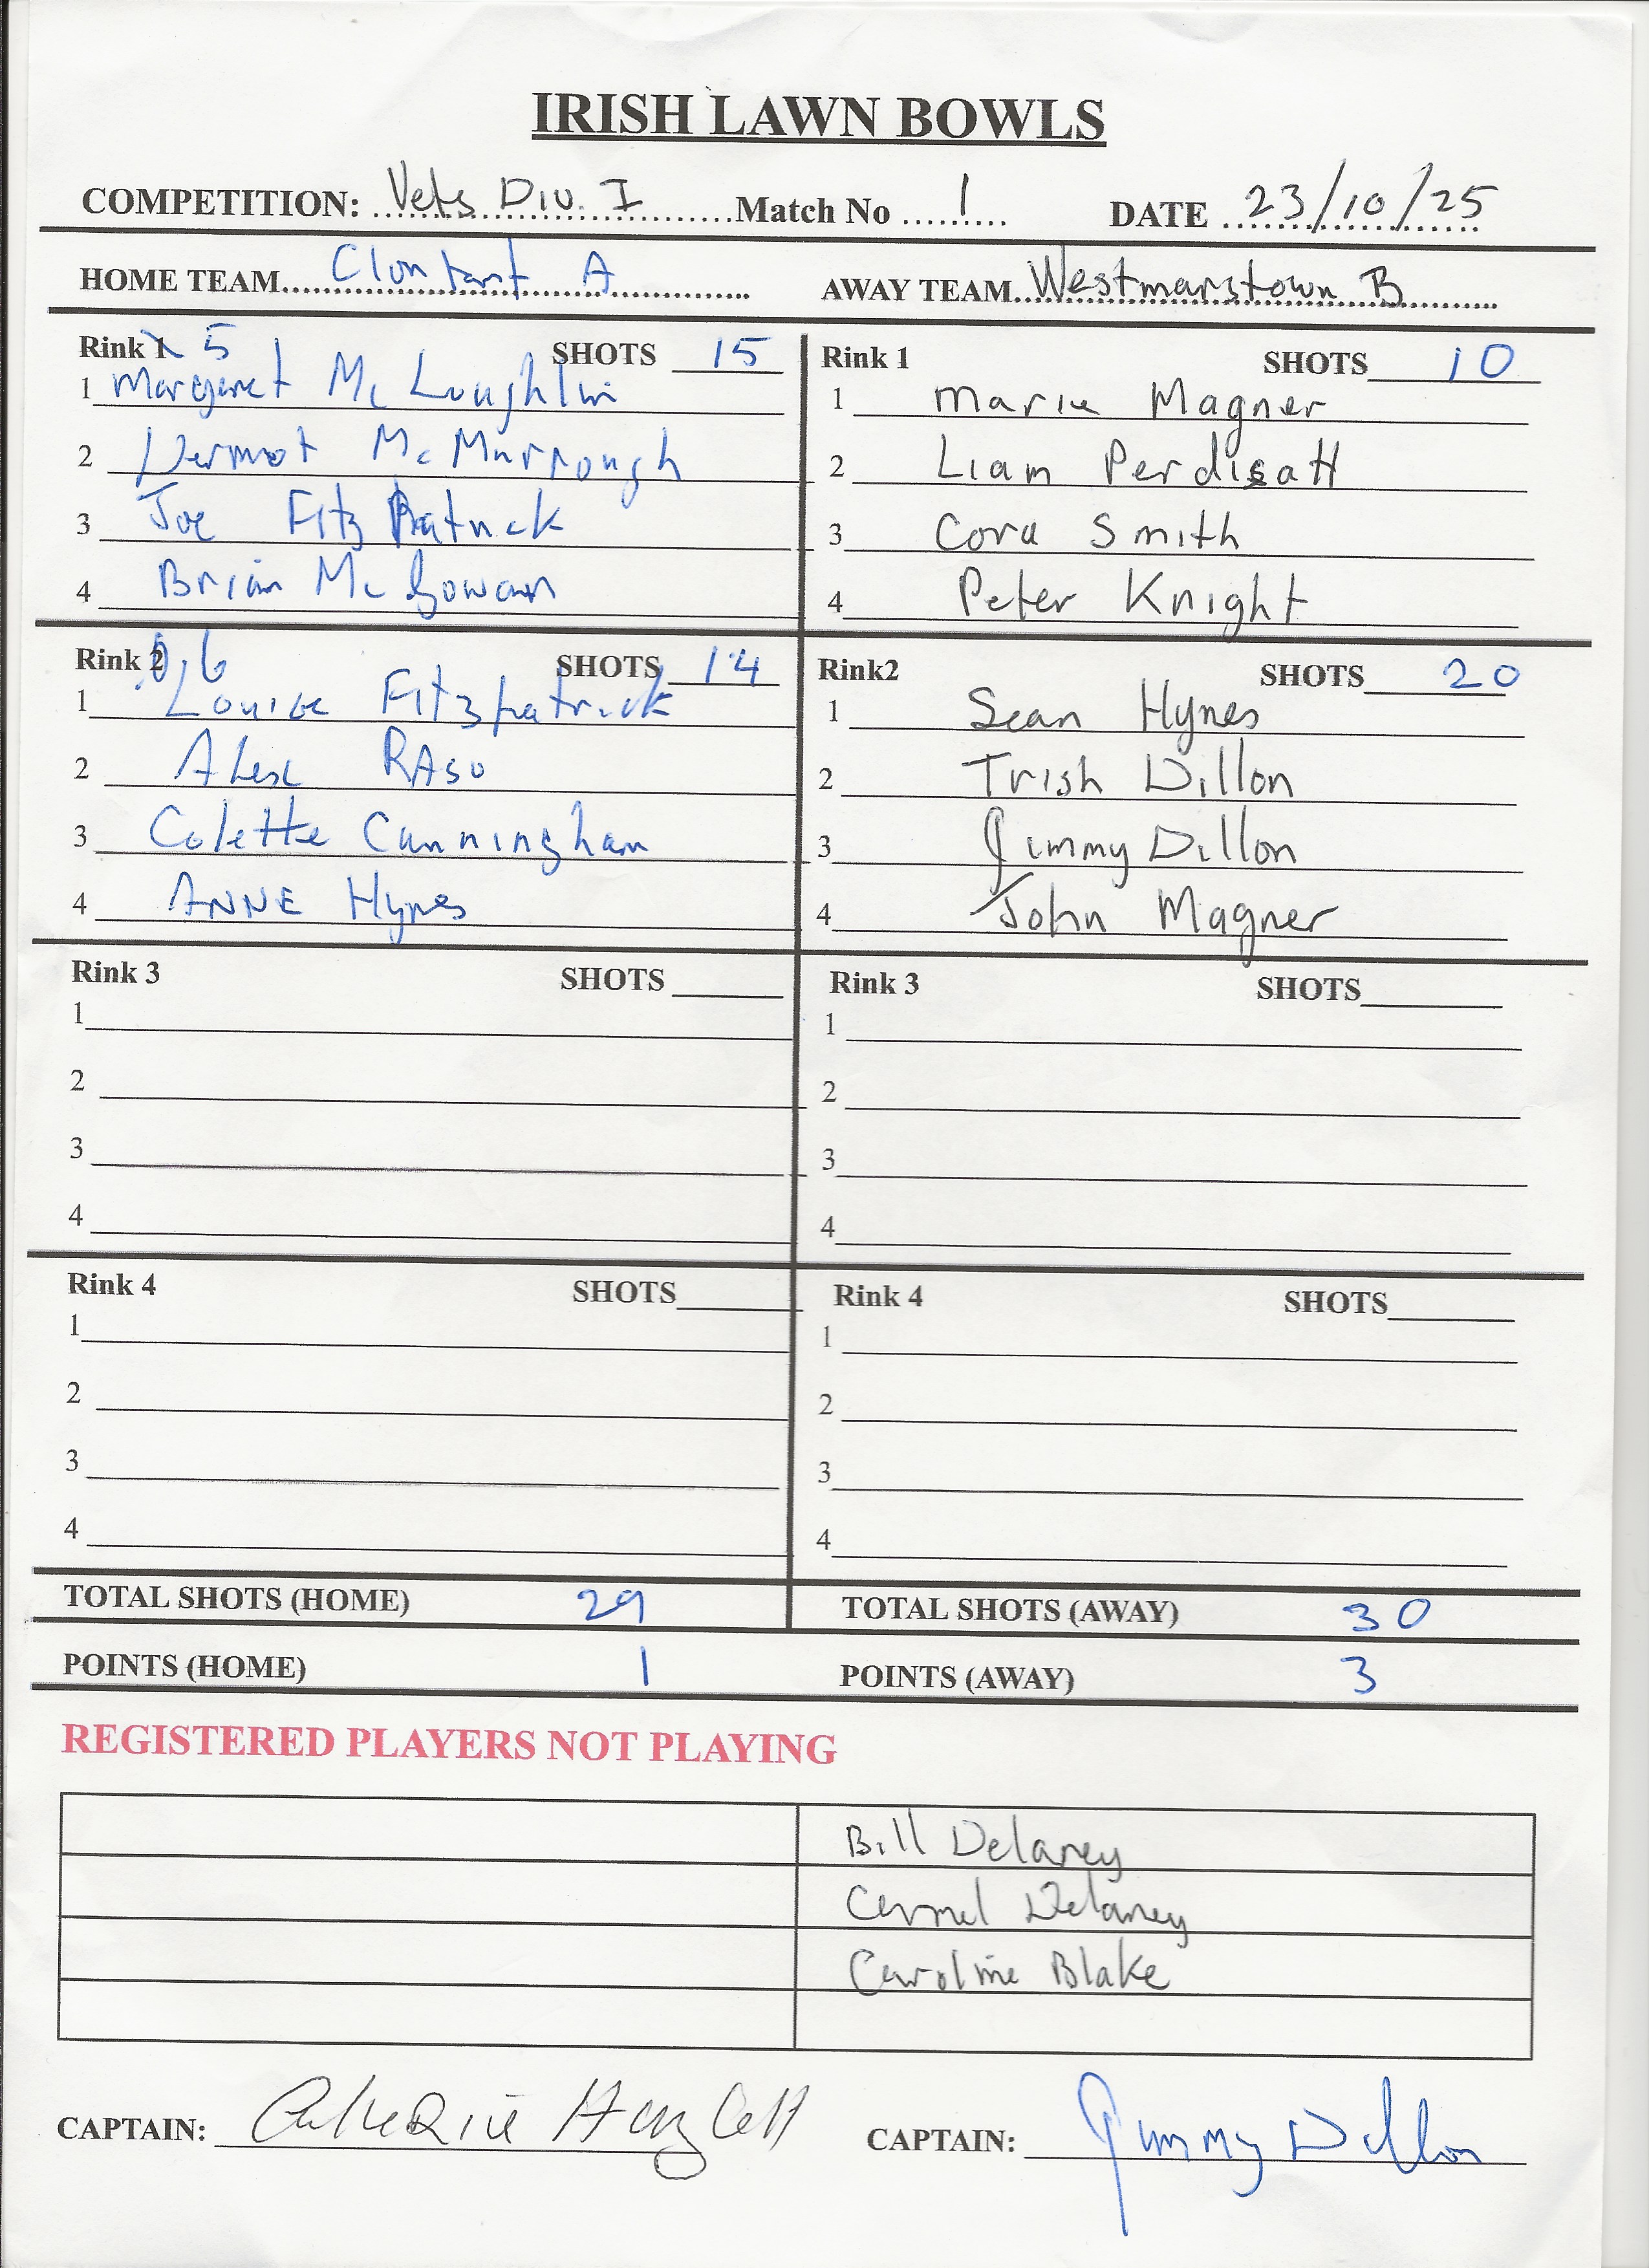 IRISH LAWN BOWLS
COMPETITION: Vets Div. I Match No 1 DATE 23/10/25
HOME TEAM Clontarf A AWAY TEAM Westmanstown B
Rink 1 5 SHOTS 15
1 Margaret Mc Loughlin
2 Dermot Mc Murrough
3 Joe Fitz Patrick
4 Brian Mc Gowan
Rink 1 SHOTS 10
1 Marie Magner
2 Liam Perdisatt
3 Cora Smith
4 Peter Knight
Rink 2 6 SHOTS 14
1 Louise Fitzpatrick
2 RASO
3 Colette Cunningham
4 ANNE Hynes
Rink2 SHOTS 20
1 Sean Hynes
2 Trish Dillon
3 Jimmy Dillon
4 John Magner
Rink 3 SHOTS
1
2
3
4
Rink 3 SHOTS
1
2
3
4
Rink 4 SHOTS
1
2
3
4
Rink 4 SHOTS
1
2
3
4
TOTAL SHOTS (HOME) 29 TOTAL SHOTS (AWAY) 30
POINTS (HOME) 1 POINTS (AWAY) 3
REGISTERED PLAYERS NOT PLAYING
Bill Delaney
Carmel Delaney
Caroline Blake
CAPTAIN: CAPTAIN: Jimmy Dillon